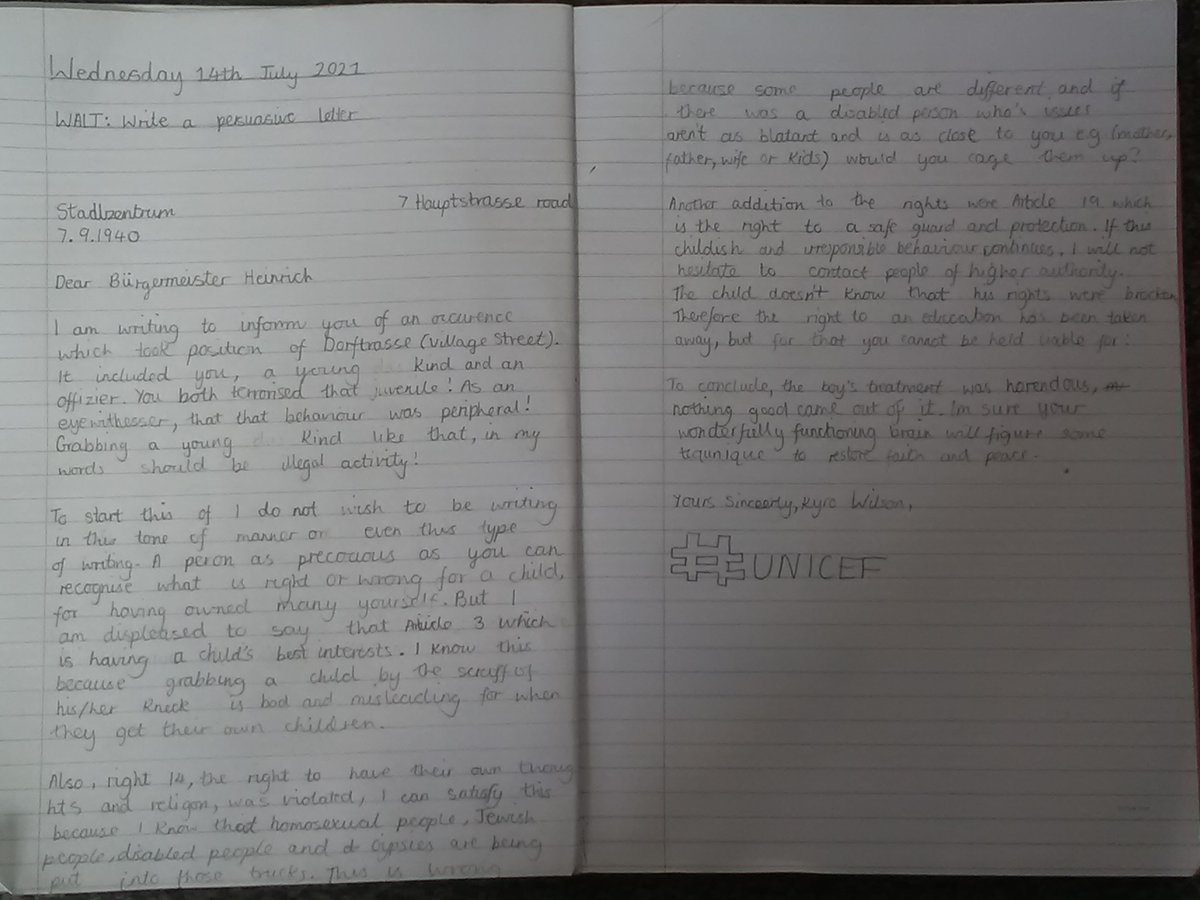 Wednesday 14th July 2021
WALT: Write a persuasive letter
7 Hauptstrasse road
Stadlzentrum
7.9.1940
Dear Bürgermeister Heinrich
I am writing to inform you of an occurence
which took position of Dorftrasse (village street).
It included you, a young Kind and an
offizier. You both terrorised that juvenile! As an
eyewithesser, that that behaviour was peripheral!
Grabbing a young Kind like that, in my
words should be illegal activity!
To start this of I do not wish to be writing
in this tone of manner or even this type
of writing. A peron as precocious as you can
recognise what is right or wrong for a child,
for having owned many yourself. But I
am displeased to say that Article 3 which
is having a child's best interests. I know this
because grabbing a child by the scruff of
his/her kneck is bad and misleading for when
they get their own children.
Also, right 14, the right to have their own thoug
hts and religon, was violated, I can satisfy this
because I know that homosexual people, Jewish
people, disabled people and Gypsies are being
put into those trucks. This is wrong
because some people are different and if
there was a disabled person who's issues
aren't as blatant and is as close to you e.g (mother,
father, wife or kids) would you cage them up?
Another addition to the rights were Article 19 which
is the right to a safe guard and protection. If this
childish and irresponsible behaviour continues, I will not
hesitate to contact people of higher authority.
The child doesn't know that his rights were brocken
Therefore the right to an education has been taken
away, but for that you cannot be held liable for.
To conclude, the boy's treatment was harendous,
nothing good came out of it. Im sure your
wonderfully functioning brain will figure some
tequnique to restore faith and peace.
Yours Sinceerly, Kyro Wilson,
#UNICEF